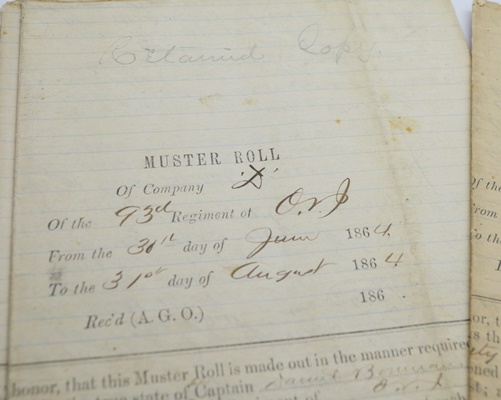 Retained Copy.
MUSTER ROLL
Of Company "D"
Of the 93d Regiment of O.V.I
From the 30th day of June 1864.
To the 31st day of August 1864
186 .
Rec'd (A. G. O.)
honor, that this Muster Roll is made out in the manner require
state of Captain
O.V.I.